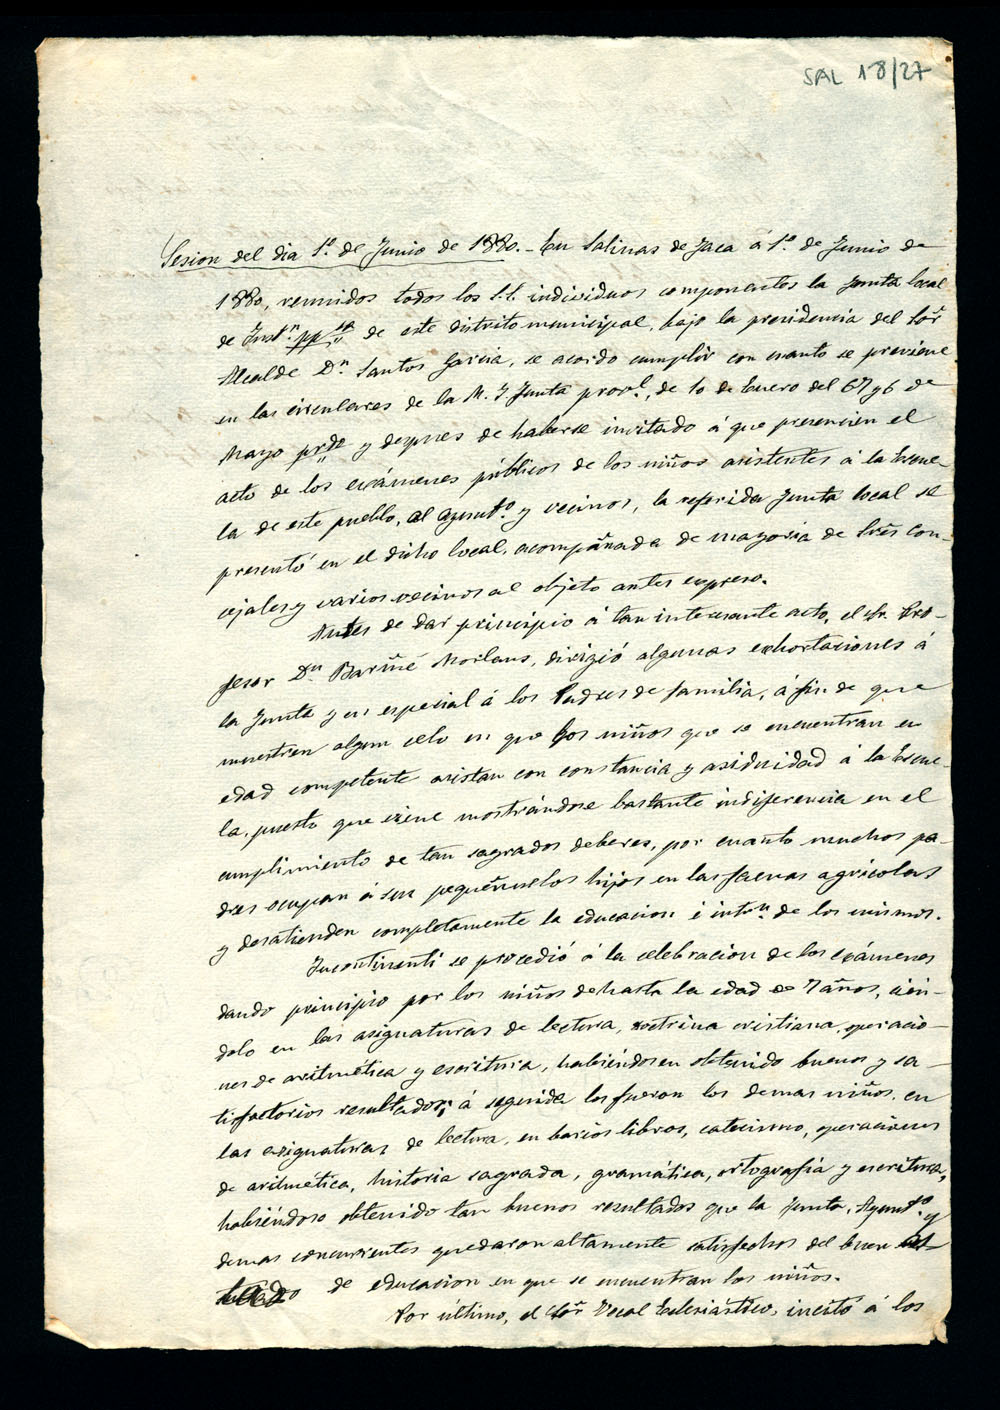 SAL 18/27
Sesion del dia 1º. de Junio de 1880.- En Salinas de Jaca á 1º. de Junio de
1880, reunidos todos los S.S. individuos componentes la Junta local
de Instn. ppca. de este distrito municipal, bajo la presidencia del Sor.
Alcalde Dn. Santos Garcia, se acordo cumplir con cuanto se previene
en las circulares de la M. I. Junta provl., de 10 de Enero del 67 y 6 de
Mayo y despues de haberse invitado á que presencien el
acto de los exámenes públicos de los niños asistentes á la Escue-
la de este pueblo, al Ayuntº. y vecinos, la referida Junta local se
presentó en el dicho local, acompañada de mayoria de Sres Con-
cejales y varios vecinos al objeto antes expreso.
Antes de dar principio á tan interesante acto, el Sr. Pro-
fesor Dn. Morlans, dirigió algunas exhortaciones á
la Junta y en especial á los Padres de familia, á fin de que
muestren algun celo en que los niños que se encuentran en
edad competente asistan con constancia y asiduidad á la Escue-
la, puesto que viene mostrándose bastante indiferencia en el
cumplimiento de tan sagrados deberes, por cuanto muchos pa-
dres ocupan á sus pequeñuelos hijos en las faenas agrícolas
y desatienden completamente la educacion é intn. de los mismos.
Incontinenti se procedió á la celebracion de los exámenes
dando principio por los niños de hasta la edad de 7 años, sién-
dolo en las asignaturas de lectura, doctrina cristiana, operacio-
nes de aritmética y escritura, habiéndosen obtenido buenos y sa-
tisfactorios resultados; á seguida los fueron los demas niños, en
las asignaturas de lectura, en barios libros, catecismo, operaciones
de aritmética, historia sagrada, gramática, ortografía y escritura,
habiéndose obtenido tan buenos resultados que la Junta, Ayuntº. y
demas concurrentes quedaron altamente satisfechos del buen es-
tado de educacion en que se encuentran los niños.
Por último, el Sor. Vocal Eclesiástico, incitó á los